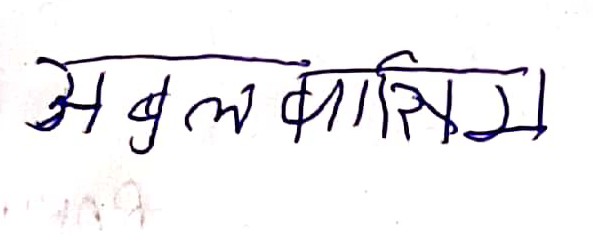 अबुल कासिम